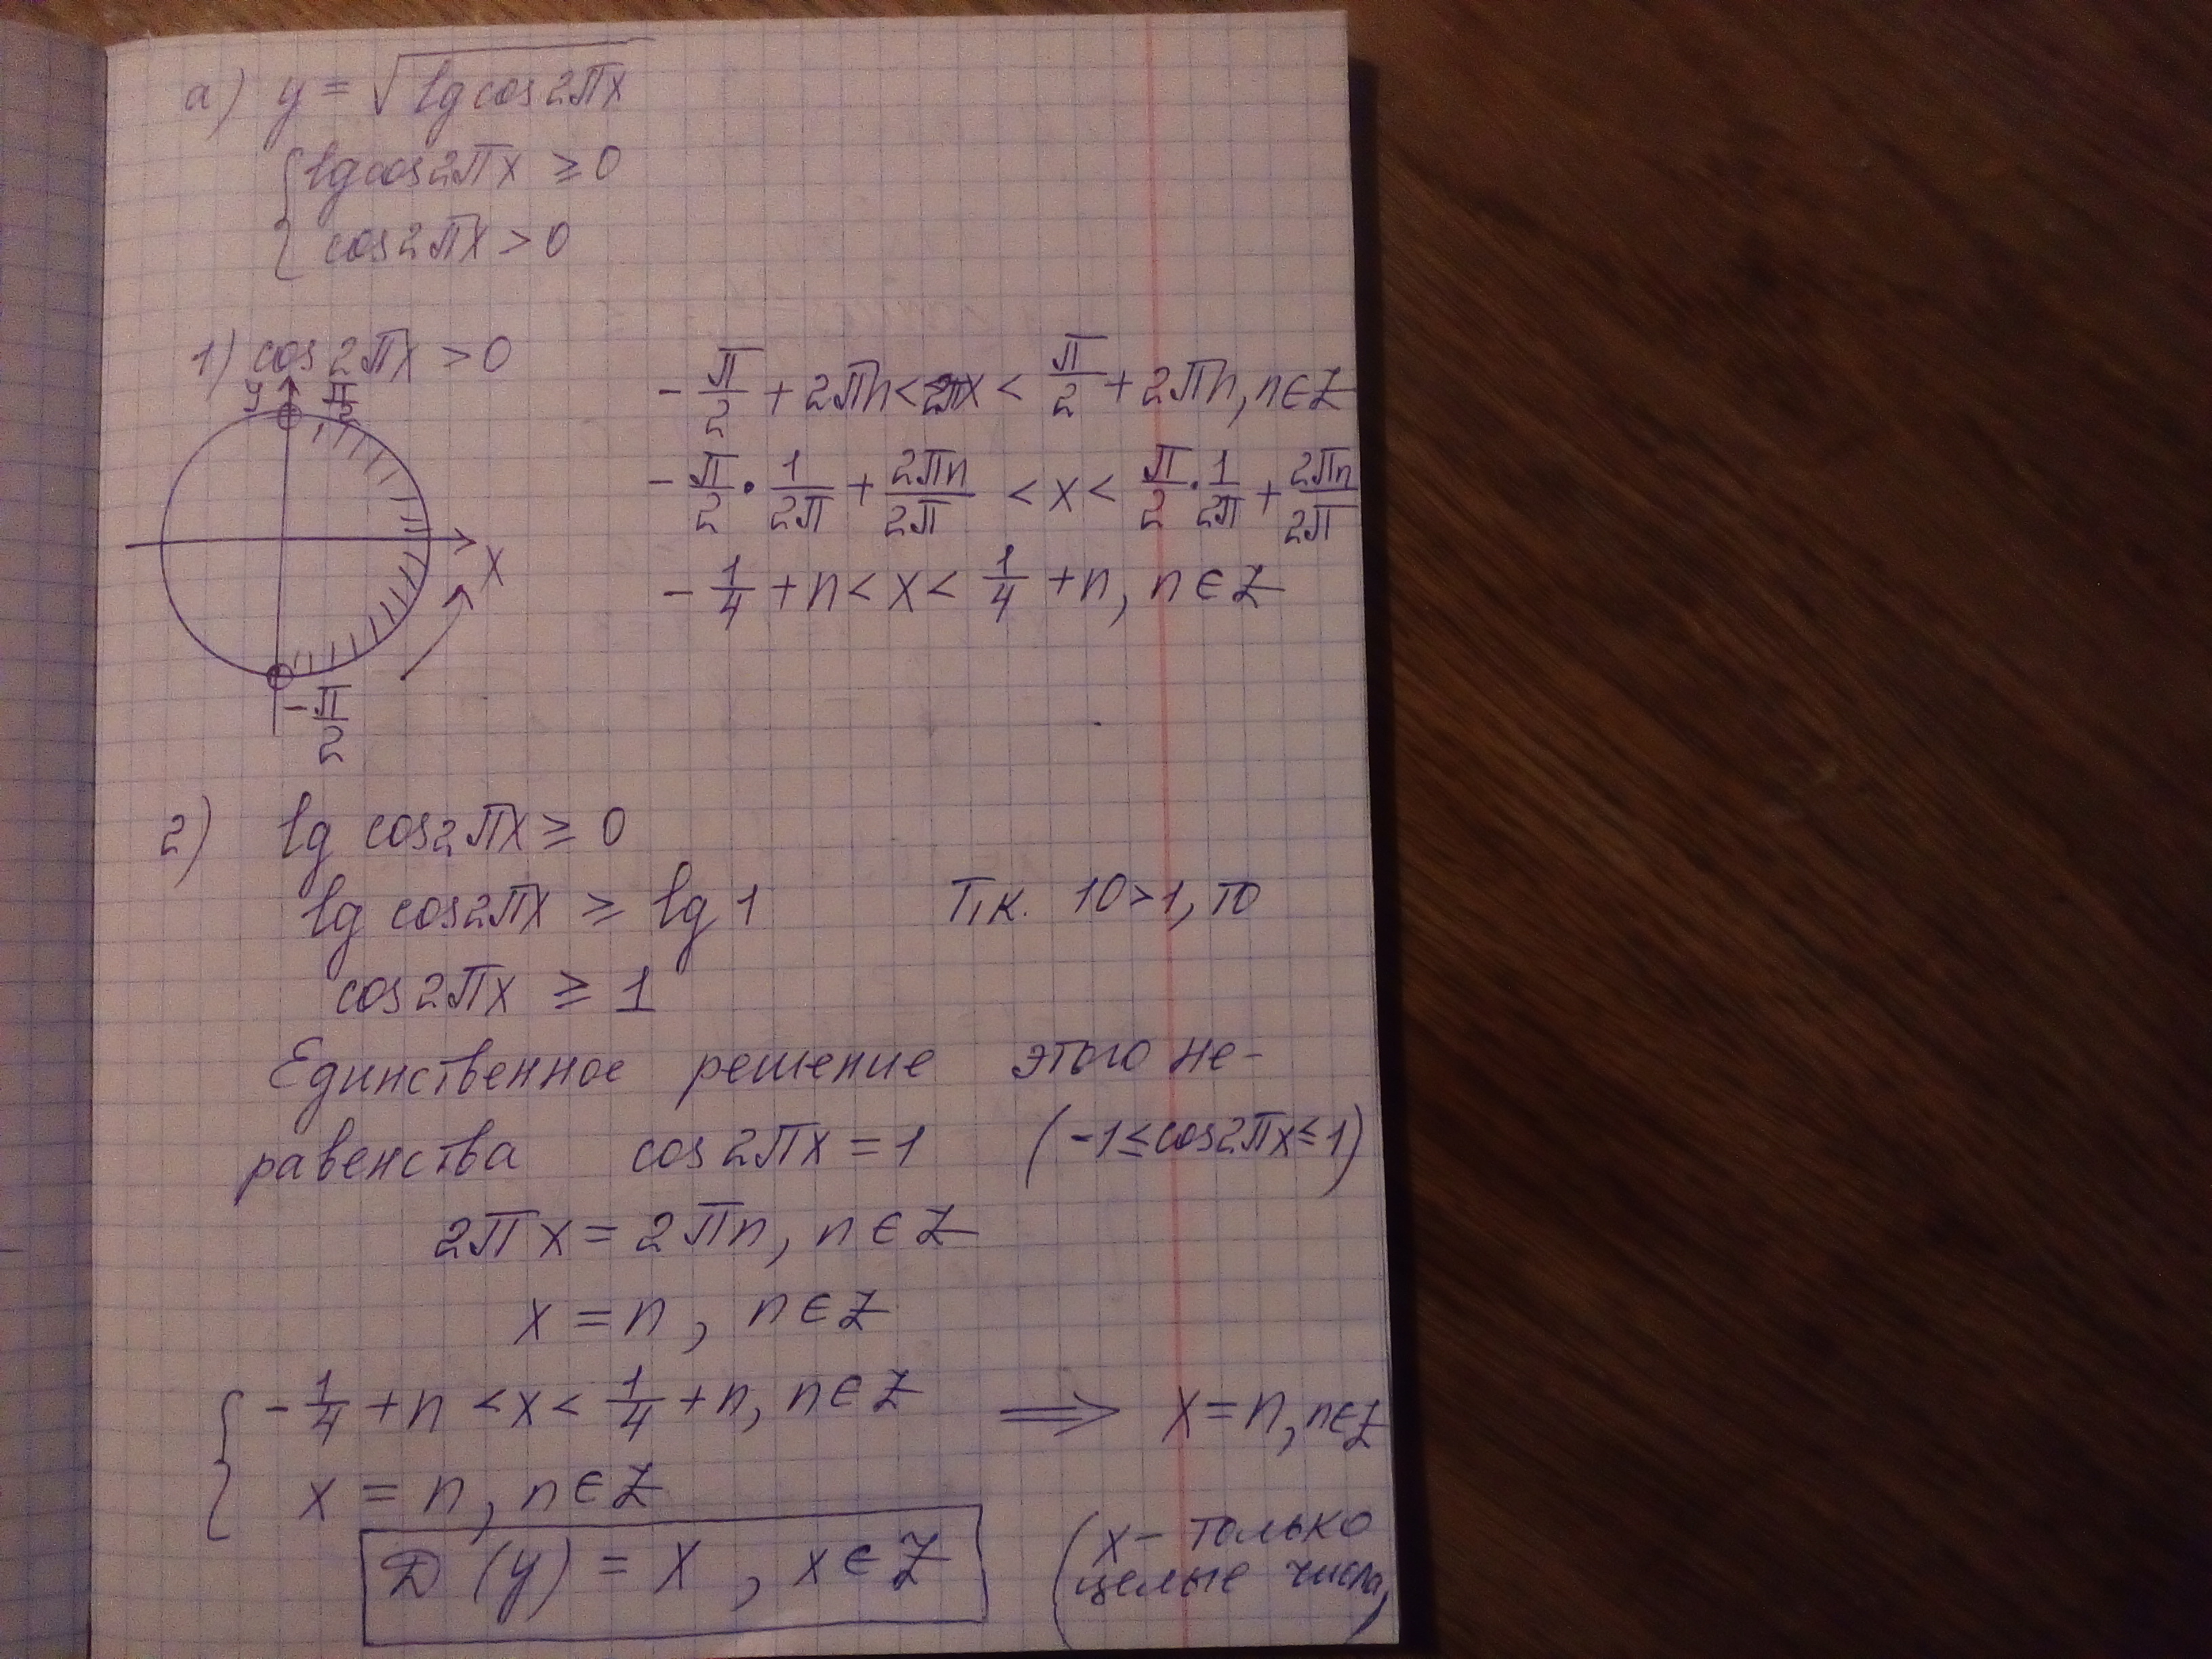 а) y = √(lg cos 2πx)
{ lg cos 2πx ≥ 0
cos 2πx > 0
1) cos 2πx > 0
y π/2
x
-π/2
- π/2 + 2πn < 2πx < π/2 + 2πn, n ∈ Z
- π/2 · 1/2π + 2πn/2π < x < π/2 · 1/2π + 2πn/2π
- 1/4 + n < x < 1/4 + n, n ∈ Z
2) lg cos 2πx ≥ 0
lg cos 2πx ≥ lg 1 Т.к. 10 > 1, то
cos 2πx ≥ 1
Единственное решение этого не-
равенства cos 2πx = 1 (-1 ≤ cos 2πx ≤ 1)
2πx = 2πn, n ∈ Z
x = n, n ∈ Z
{ - 1/4 + n < x < 1/4 + n, n ∈ Z ⟹ x = n, n ∈ Z
x = n, n ∈ Z
D(y) = x, x ∈ Z
(x – только
целые числа)